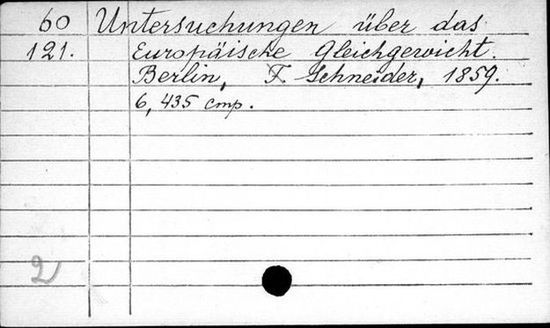 60 Untersuchungen über das
121. Europäische Gleichgewicht.
Berlin, F. Schneider, 1859.
6, 435 стр.
2